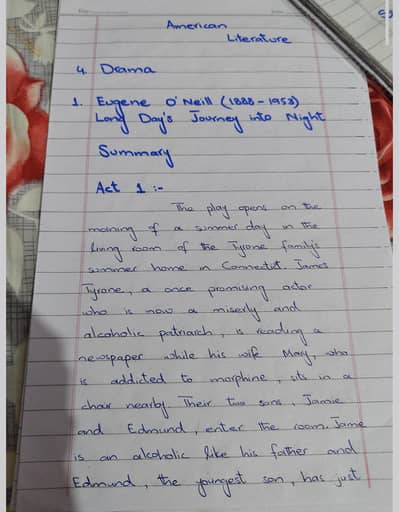 American
Literature
4. Drama
1. Eugene O'Neill (1888 - 1953)
Long Day's Journey into Night
Summary
Act 1 :-
The play opens on the
morning of a summer day in the
living room of the Tyrone family's
summer home in Connectut. James
Tyrone, a once promising actor
who is now a miserly and
alcoholic patriarch, is reading a
newspaper while his wife Mary, who
is addicted to morphine, sits in a
chair nearby. Their two sons, Jamie
and Edmund, enter the room. Jamie
is an alcoholic like his father and
Edmund, the youngest son, has just